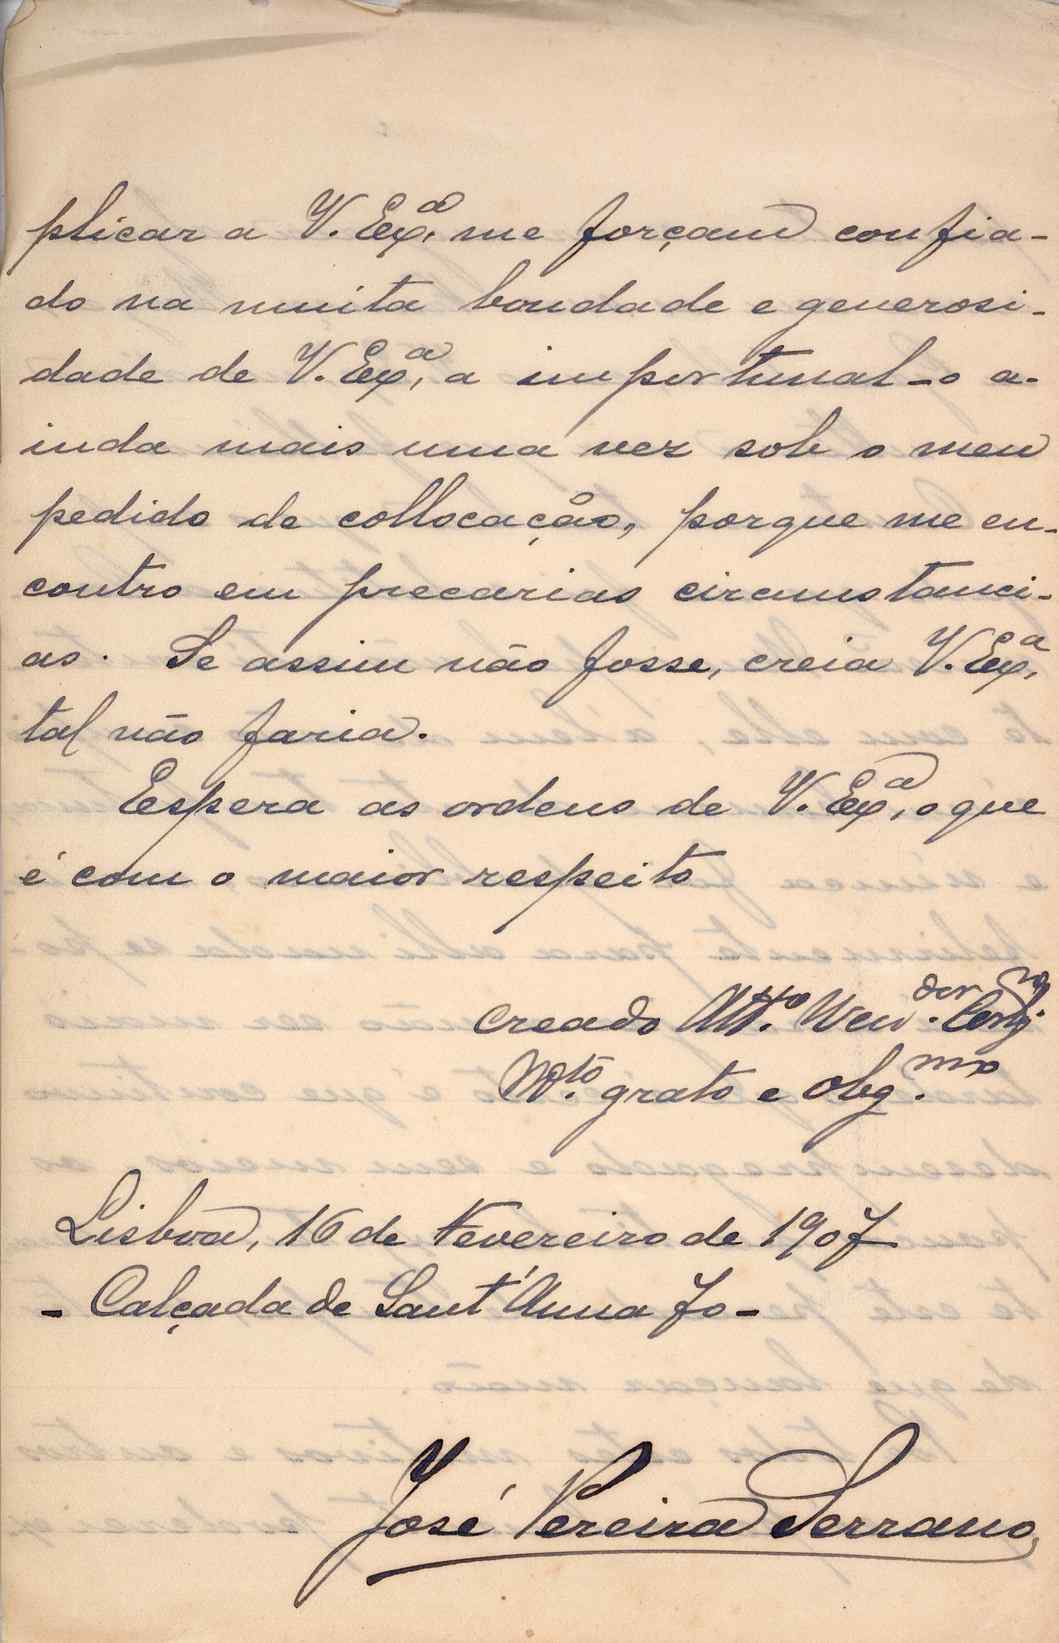 plicar a V. Exª. me forçam confia-
do na muita bondade e generosi-
dade de V. Exª, a importunal-o a-
inda mais uma vez sob o meu
pedido de collocação, porque me en-
contro em precarias circumstanci-
as. Se assim não fosse, creia V. Exª,
tal não faria.
Espera as ordens de V. Exª, o que
é com o maior respeito
creado Att.to Ven.dor
M.to grato e obg.mo
Lisboa, 16 de Fevereiro de 1907
- Calçada de Sant'Anna 70 -
José Pereira Serrano